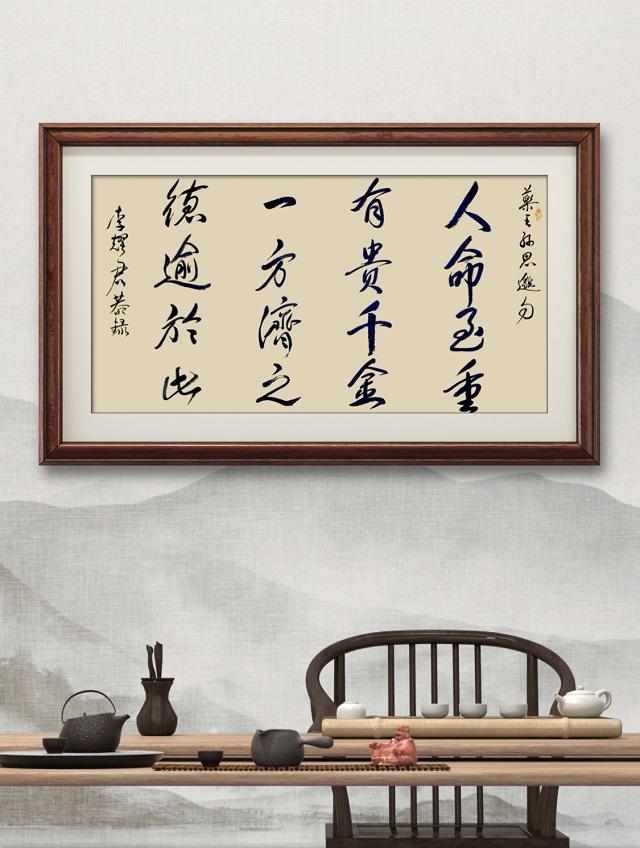 药王孙思邈句
人命至重
有贵千金
一方济之
德逾於此
李耀君恭录